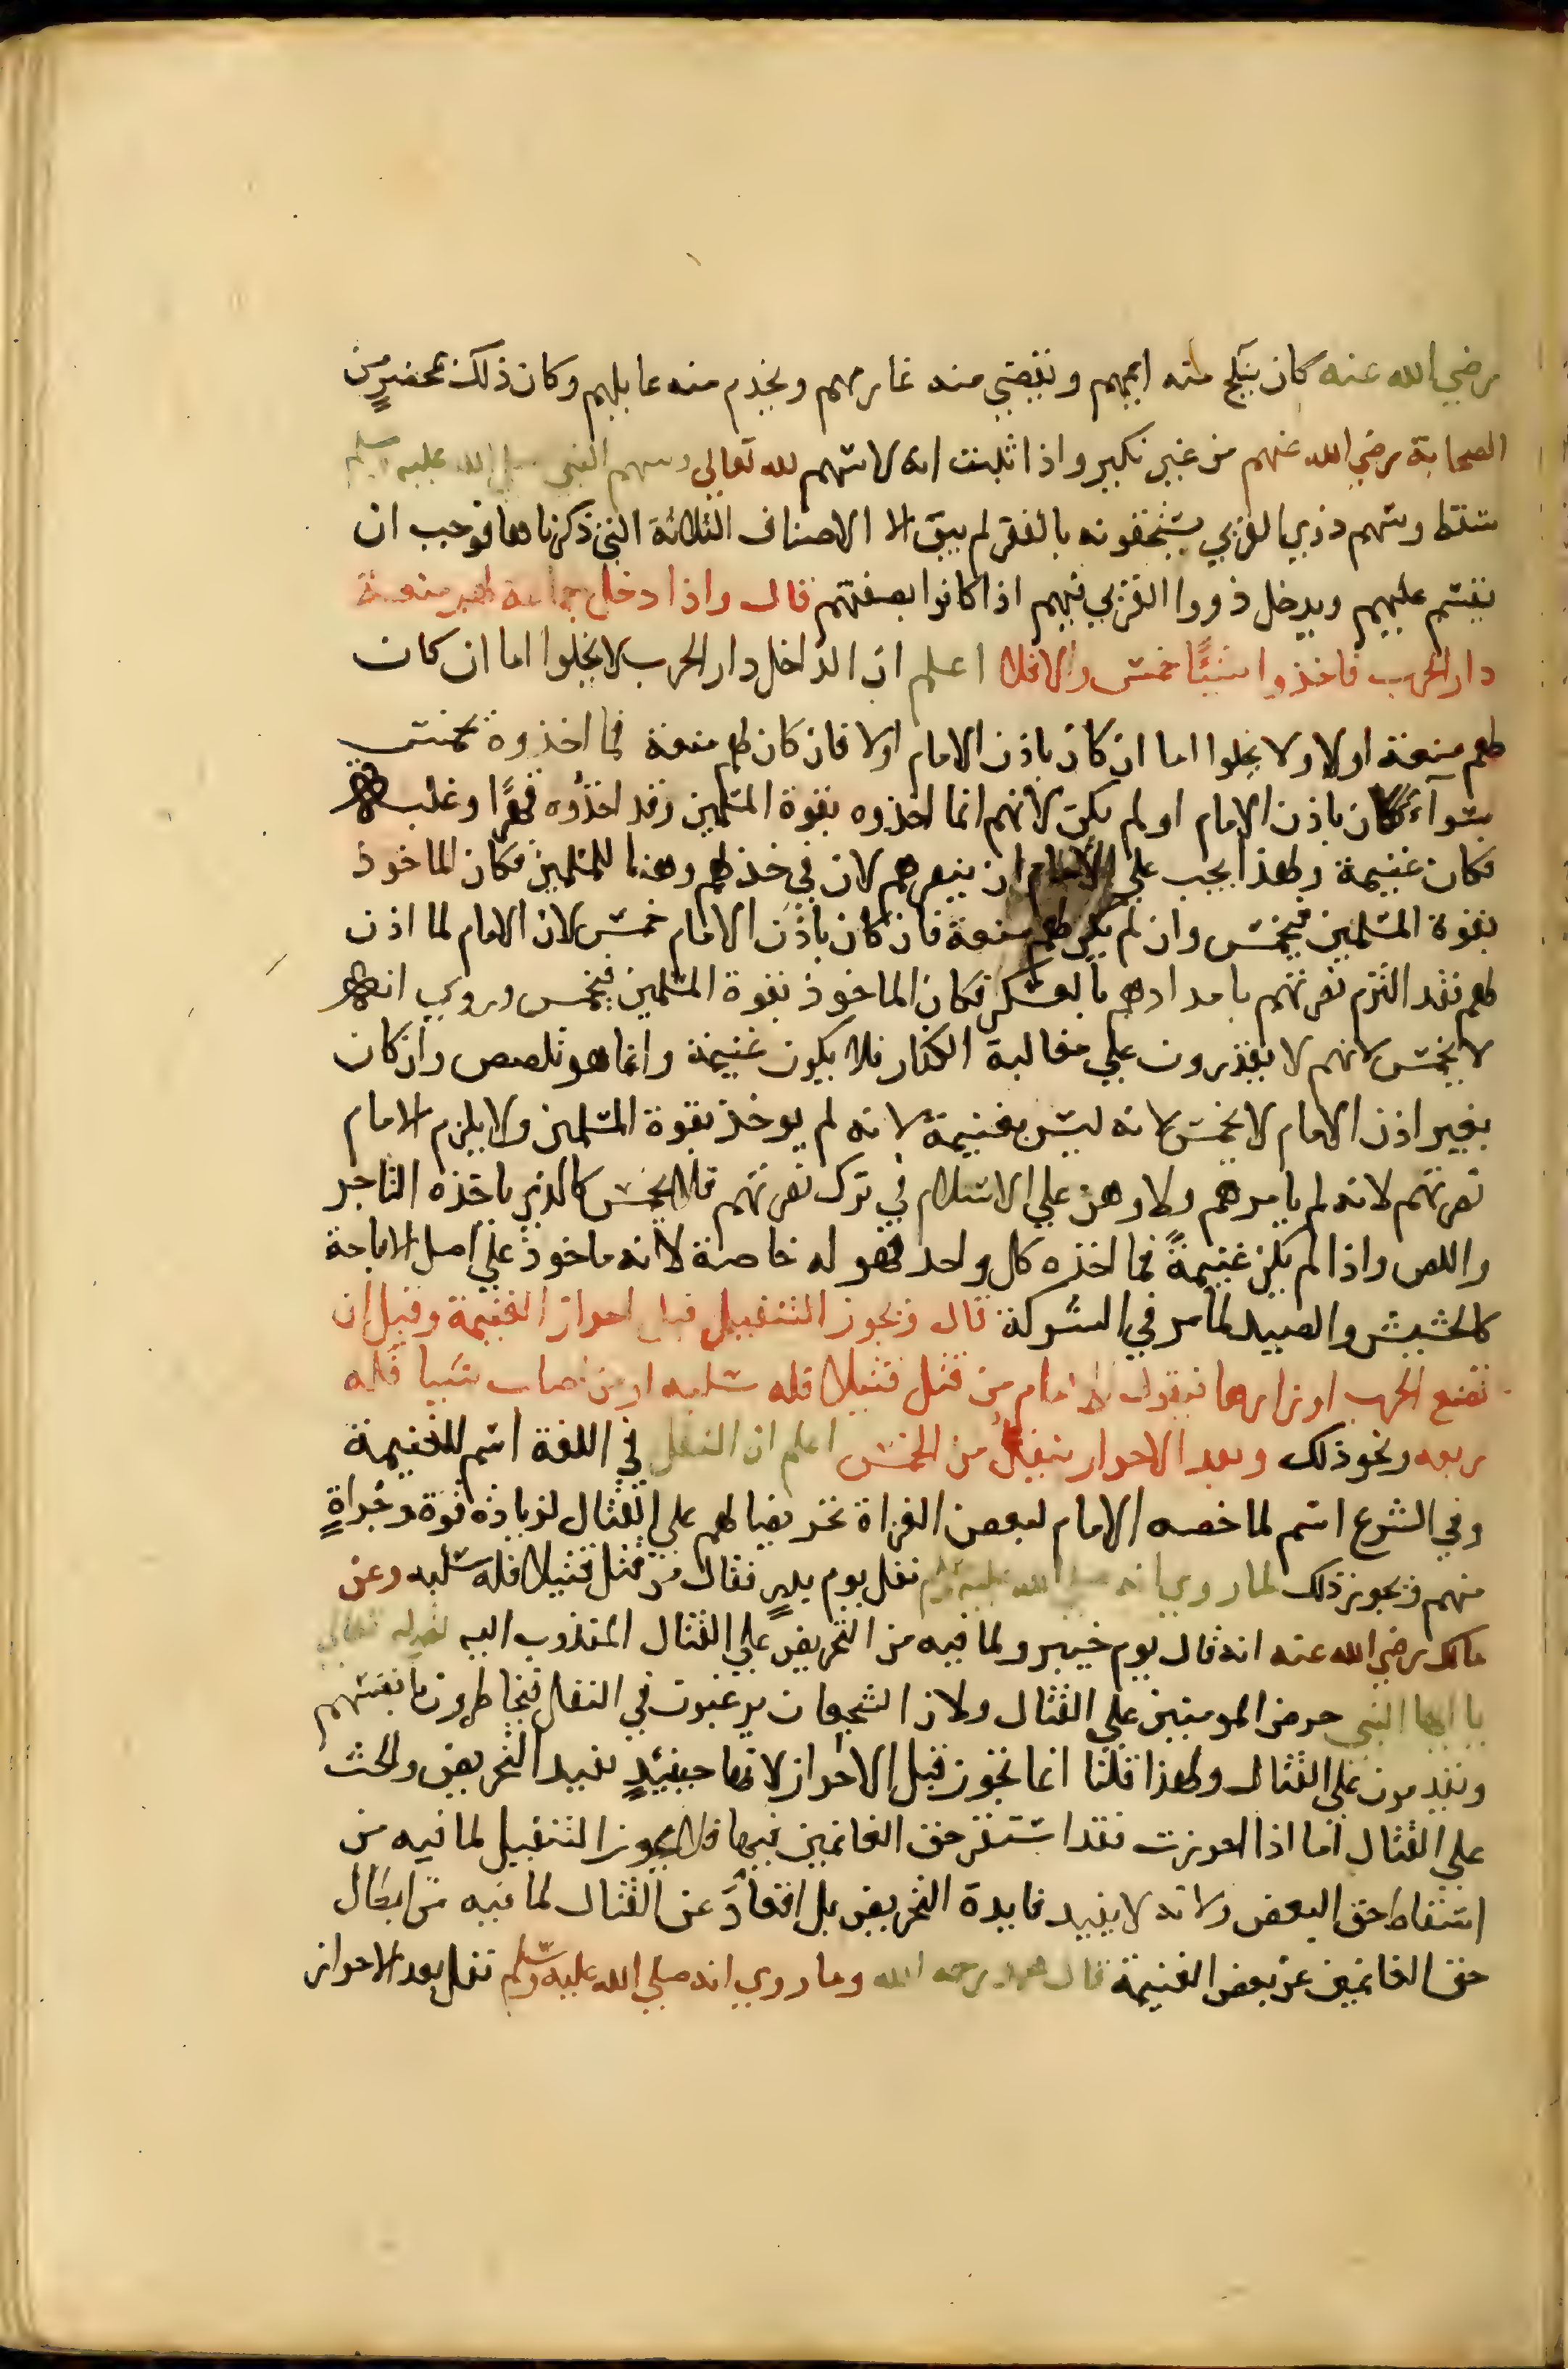 رضي الله عنه كان ينكح منه ايمهم ويقضي منه غارمهم ويخدم منه عايلهم وكان ذلك بمحضرٍ من
الصحابة رضي الله عنهم من غير نكير واذا ثبت انه لا سهم لله تعالي وسهم النبي صلي الله عليه وسلم
سقط وسهم ذوي القربي يستحقونه بالفقر لم يبق الا الاصناف الثلاثة التي ذكرناها فوجب ان
يقسم عليهم ويدخل ذووا القربي فيهم اذا كانوا بصفتهم قال واذا دخل جماعة لهم منعة
دار الحرب فاخذوا شيئًا خمس والا فلا اعلم ان الداخل دار الحرب لا يخلوا اما ان كان
لهم منعة اولا ولا يخلوا اما ان كان باذن الامام اولا فان كان لهم منعة فما اخذوه يخمس
سوآء كان باذن الامام او لم يكن لانهم انما اخذوه بقوة المسلمين وقد اخذوه قهرًا وغلبة
فكان غنيمة ولهذا يجب علي الامام ان ينصرهم لان في خذلهم وهنا للمسلمين فكان الماخوذ
بقوة المسلمين فيخمس وان لم يكن لهم منعة فان كان باذن الامام خمس لان الامام لما اذن
لهم فقد التزم نصرتهم بامدادهم بالعسكر فكان الماخوذ بقوة المسلمين فيخمس وروي انه
لا يخمس لانهم لا يقدرون علي مغالبة الكفار فلا يكون غنيمة وانما هو تلصص وان كان
بغير اذن الامام لا يخمس لانه ليس بغنيمة لانه لم يوخذ بقوة المسلمين ولا يلزم الامام
نصرتهم لانه لم يامرهم ولا وهن علي الاسلام في ترك نصرتهم فلا يخمس كالذي ياخذه التاجر
واللص واذا لم يكن غنيمةً فما اخذه كل واحد فهو له خاصة لانه ماخوذ علي اصل الاباحة
كالحشيش والصيد لما مر في الشركة قال ويجوز التنفيل قبل احراز الغنيمة وقبل ان
تضع الحرب اوزارها فيقول الامام من قتل قتيلا فله سلبه او من اصاب شيا فله
ربعه ونحو ذلك وبعد الاحراز ينفل من الخمس اعلم ان النفل في اللغة اسم للغنيمة
وفي الشرع اسم لما خصه الامام لبعض الغزاة تحريضا لهم علي القتال لزيادة قوة وجراةٍ
منهم ويجوز ذلك لما روي انه صلي الله عليه وسلم نفل يوم بدرٍ فقال من قتل قتيلا فله سلبه وعن
مالك رضي الله عنه انه قال يوم خيبر ولما فيه من التحريض علي القتال المندوب اليه لقوله تعالي
يا ايها النبي حرض المومنين علي القتال ولان الشجعان يرغبون في النفل فيخاطرون بانفسهم
ويقدمون علي القتال ولهذا قلنا انما تجوز قبل الاحراز لانها حينئذٍ تفيد التحريض والحث
علي القتال اما اذا احرزت فقد استقر حق الغانمين فيها فلا يجوز التنفيل لما فيه من
اسقاط حق البعض ولانه لا يفيد فايدة التحريض بل اقعادً عن القتال لما فيه من ابطال
حق الغانمين عن بعض الغنيمة قال محمد رحمه الله وما روي انه صلي الله عليه وسلم نفل بعد الاحراز